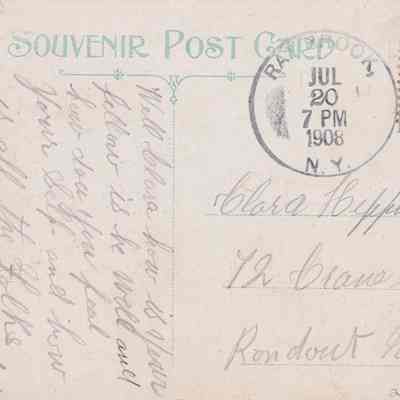 SOUVENIR POST CARD
JUL
20
7 PM
1908
N.Y.
Well Clara how is your
fellow is he well and
how do you feel
your self and how
is all the folks
Clara
72 Crane
Rondout